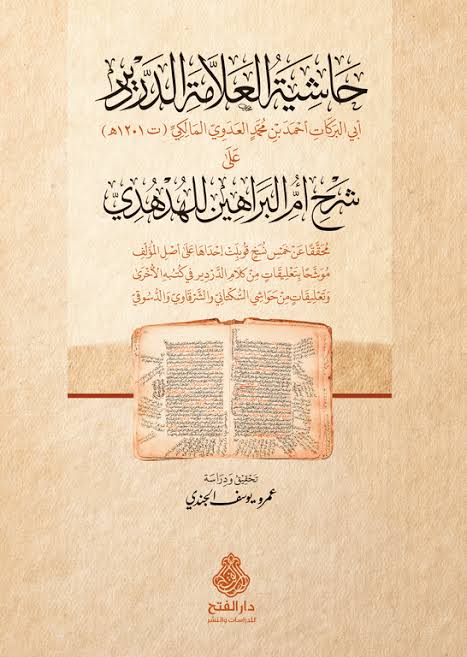 حَاشِيَةُ العَلَّامَةِ الدَّرْدِيرِ
أبي البَرَكَاتِ أحْمَدَ بْنِ مُحَمَّدٍ العَدَوِيِّ المَالِكِيِّ (ت ١٢٠١هـ)
عَلَى
شَرْحِ أُمِّ البَرَاهِينِ لِلْهُدْهُدِيِّ
مُحَقَّقًا عَنْ خَمْسِ نُسَخٍ قُوبِلَتْ إحْدَاهَا عَلَى أصْلِ المُؤَلِّفِ
مُوَشَّحًا بِتَعْلِيقَاتٍ مِنْ كَلَامِ الدَّرْدِيرِ فِي كُتُبِهِ الأُخْرَى
وَتَعْلِيقَاتٍ مِنْ حَوَاشِي السُّكْتَانِي والشَّرْقَاوِي وَالدُّسُوقِي
تَحْقِيقُ وَدِرَاسَة
عمرو يوسف الجندي
دار الفتح
للدراسات والنشر